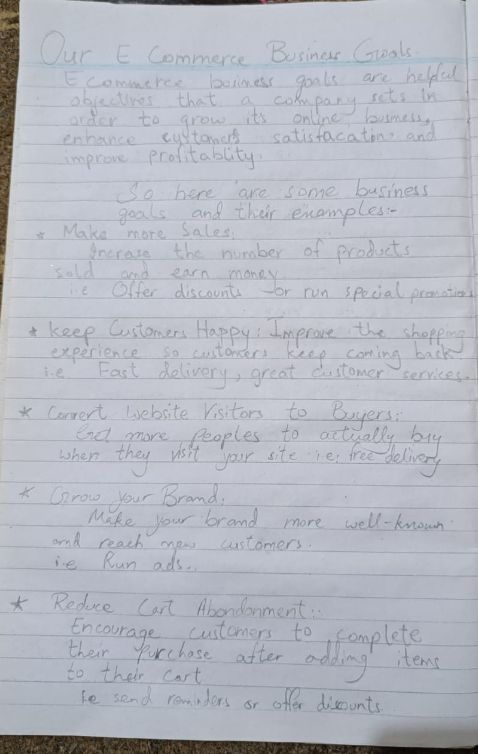 Our E Commerce Business Goals.
E Commerce business goals are helpful
objectives that a company sets in
order to grow its online business,
enhance customers satisfacation, and
improve profitablity.
So here are some business
goals and their examples:-
* Make more Sales:
Increase the number of products
sold and earn money
i.e Offer discounts or run special promotions
* keep Customers Happy: Improve the shopping
experience so customers keep coming back
i.e Fast delivery, great customer services.
* Convert Website Visitors to Buyers:
more peoples to actually buy
when they visit your site i.e, free delivery
* Grow your Brand.
Make your brand more well-known
and reach new customers.
i.e Run ads.
* Reduce Cart Abondonment:
Encourage customers to complete
their purchase after adding items
to their cart
i.e send reminders or offer discounts.